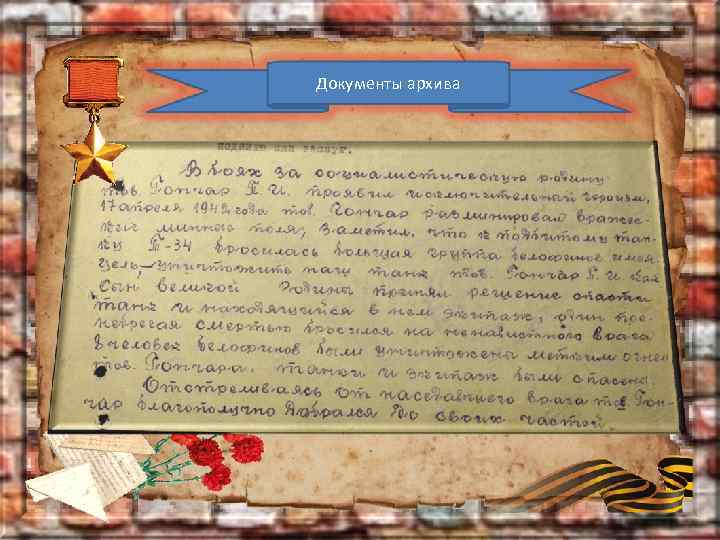 Документы архива
подвига или заслуг.
В боях за социалистическую родину
тов. Гончар П. И. проявил исключительный героизм,
17 апреля 1942 года тов. Гончар разминировал вражес-
кие минного поля, заметил, что к подбитому тан-
ку Т-34 бросилась большая группа белофинов имея
цель – уничтожить наш танк тов. Гончар П. И как
сын великой Родины принял решение спасти
танк и находящийся в нем экипаж, один пре-
небрегая смертью бросился на ненавистного врага
8 человек белофинов были уничтожены метким огнем
тов. Гончара. танк и экипаж были спасены.
Отстреливаясь от наседавшего врага тов. Гон-
чар благополучно добрался до своих частей.